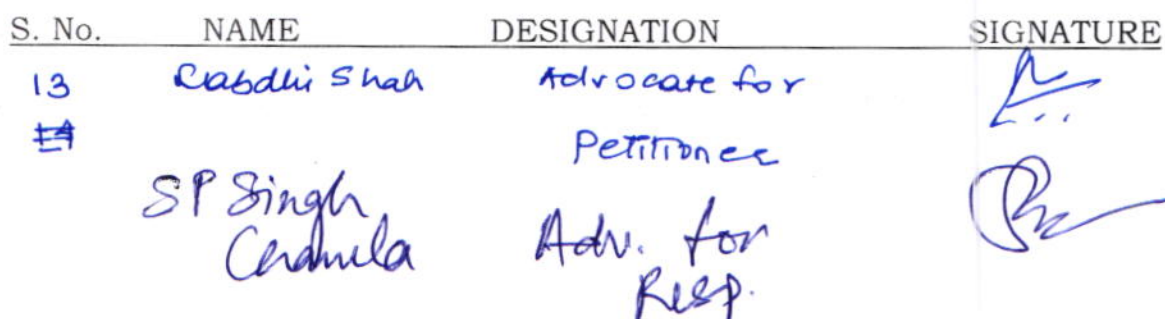 S. No. NAME DESIGNATION SIGNATURE
13 Labdhi Shah Advocate for
Petitioner
SP Singh Adv. for
Resp.